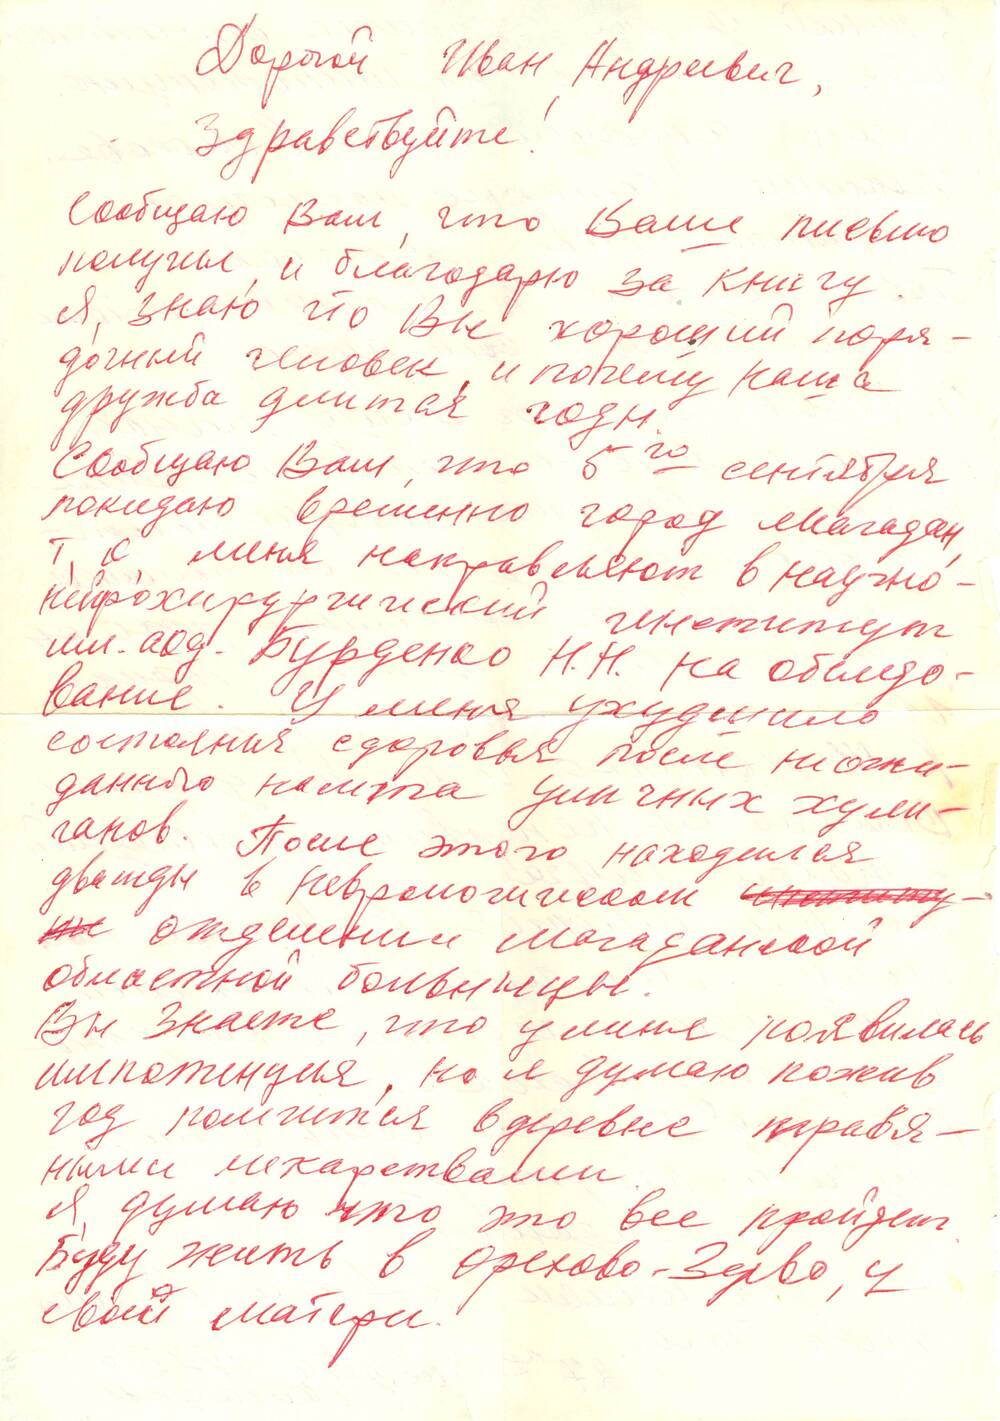 Дорогой Иван Андреевич,
Здравствуйте!
Сообщаю Вам, что Ваше письмо
получил, и благодарю за книгу.
Я, знаю что Вы хороший поря-
дочный человек, и почему наша
дружба длится годы.
Сообщаю Вам, что 5го сентября
покидаю временно город Магадан,
т, к, меня направляют в научно-
нейрохирургический институт
им. акад. Бурденко Н.Н. на обследо-
вание. У меня ухудшило
состояния здоровья после неожи-
данного налёта уличных хули-
ганов. После этого находился
дважды в неврологическом институ-
те отделении Магаданской
областной больницы.
Вы знаете, что у меня появилась
импотенция, но я думаю пожив
год полечится в деревне травя-
ными лекарствами.
Я, думаю что это все пройдет.
Буду жить в Орехово-Зуево, у
своей матери.